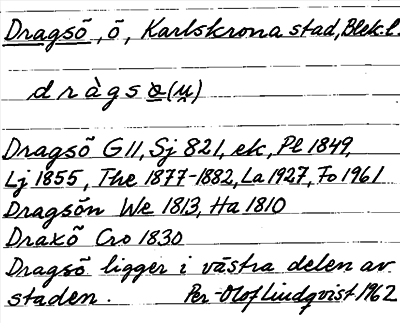 Dragsö, ö, Karlskrona stad, Blek. l.
dràgsɵ(u̯)
Dragsö G11, Sj 821, ek, Pl 1849,
Lj 1855, The 1877-1882, La 1927, Fo 1961
Dragsön We 1813, Ha 1810
Draxö Cro 1830
Dragsö ligger i västra delen av
staden. Per-Olof Lindqvist 1962